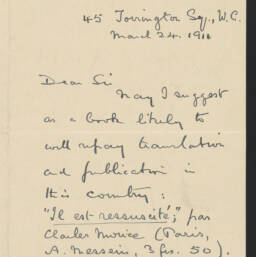 45 Torrington Sq., W.C.
March 24. 1911
Dear Sir
May I suggest
as a book likely to
well repay translation
and publication in
this country:
"Il est ressuscité," par
Charles Morice (Paris,
A. Messein, 3 frs. 50).